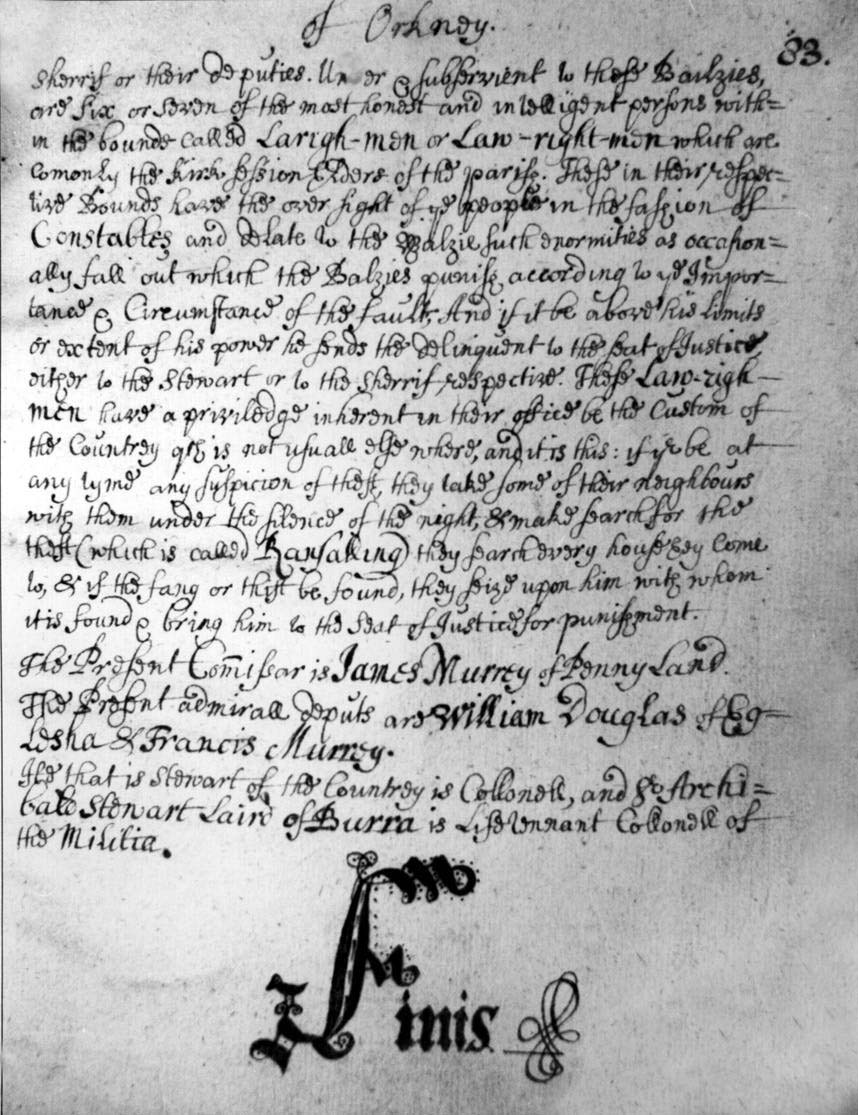 of Orkney.
83.
Sherrif or their deputies. Un er & subservient to these Bailzies,
are six or seven of the most honest and intelligent persons with=
in the bounds called Larigh-men or Law-right-men which are
comonly the Kirk session Elders of the parish. These in their respec=
tive Bounds have the over sight of ye people in the fashion of
Constables and delate to the Balzie such enormities as occasion=
ally fall out which the Balzies punish according to ye Impor=
tance & Circumstance of the fault, And if it be above his limits
or extent of his power he sends the delinquent to the seat of Justice,
either to the Stewart or to the Sherrif respective. These Law-righ-
men have a priviledge inherent in their office be the Custom of
the Countrey qch is not usuall else where, and it is this: if yr be at
any tyme any suspicion of theft, they take some of their neighbours
with them under the silence of the night, & make search for the
theft (which is called Ransalling) they search every house they come
to, & if the fang or thift be found, they seize upon him with whom
it is found & bring him to the Seat of Justice for punishment.
The Present Comissar is James Murrey of Penny Land.
The Present admirall deputs are William Douglas of Eg=
lesha & Francis Murrey.
He that is Stewart of the Countrey is Collonell, and Sr Archi=
bald Stewart Laird of Burra is Liftennant Collonell of
the Militia.
Finis